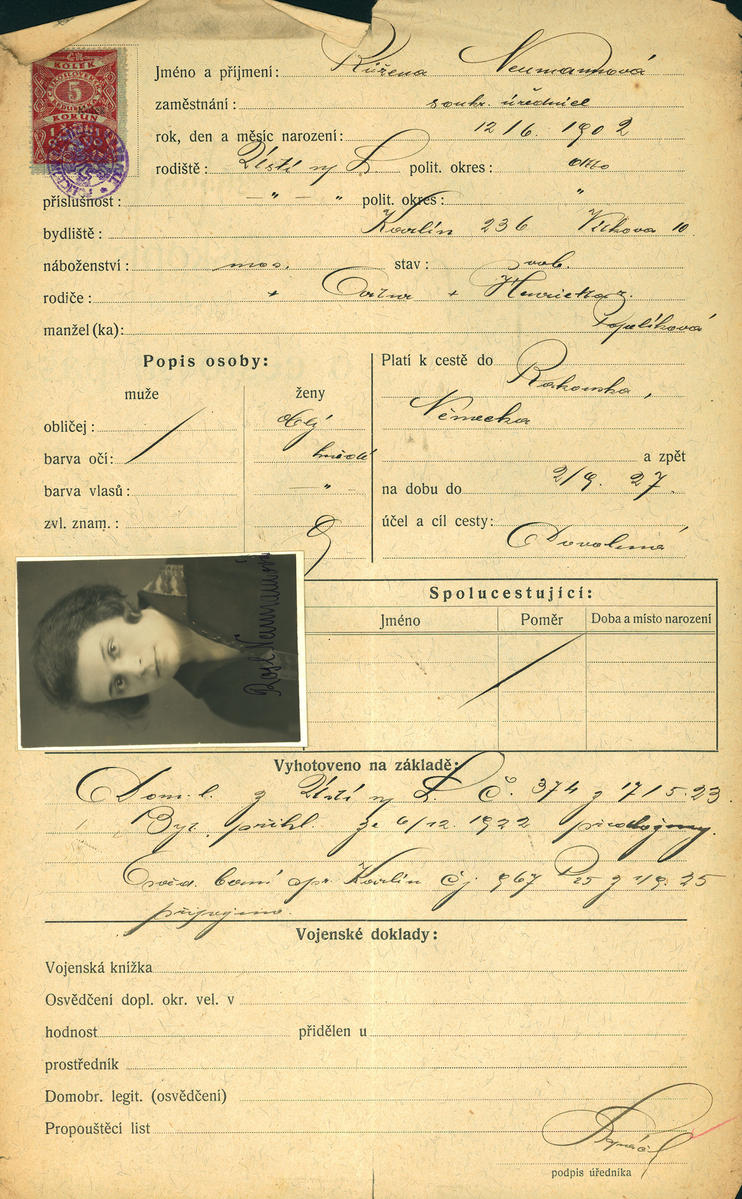 KOLEK
5
KORUN
Jméno a příjmení: Růžena Neumannová
zaměstnání: soukr. úřednice
rok, den a měsíc narození: 12/6. 1902
rodiště: Ústí n/L. polit. okres: dtto
příslušnost: — " — " polit. okres: "
bydliště: Karlín 236 Vítkova 10
náboženství: mos. stav: svob.
rodiče: + Artur + Henrietta r.
manžel(ka): Popelíková
Popis osoby:
muže ženy
obličej: oblý
barva očí: hnědé
barva vlasů: — " —
zvl. znam.:
Platí k cestě do Rakouska,
Německa
a zpět
na dobu do 2/9. 27.
účel a cíl cesty: Dovolená
Rosl Neumannová
Spolucestující:
Jméno Poměr Doba a místo narození
Vyhotoveno na základě:
Dom. l. z Ústí n/L. č. 374 z 17/5. 23.
Byt. přihl. ze 6/12. 1922
Karlín čj 967 z 1/9. 25
připojeno.
Vojenské doklady:
Vojenská knížka
Osvědčení dopl. okr. vel. v
hodnost přidělen u
prostředník
Domobr. legit. (osvědčení)
Propouštěcí list
podpis úředníka